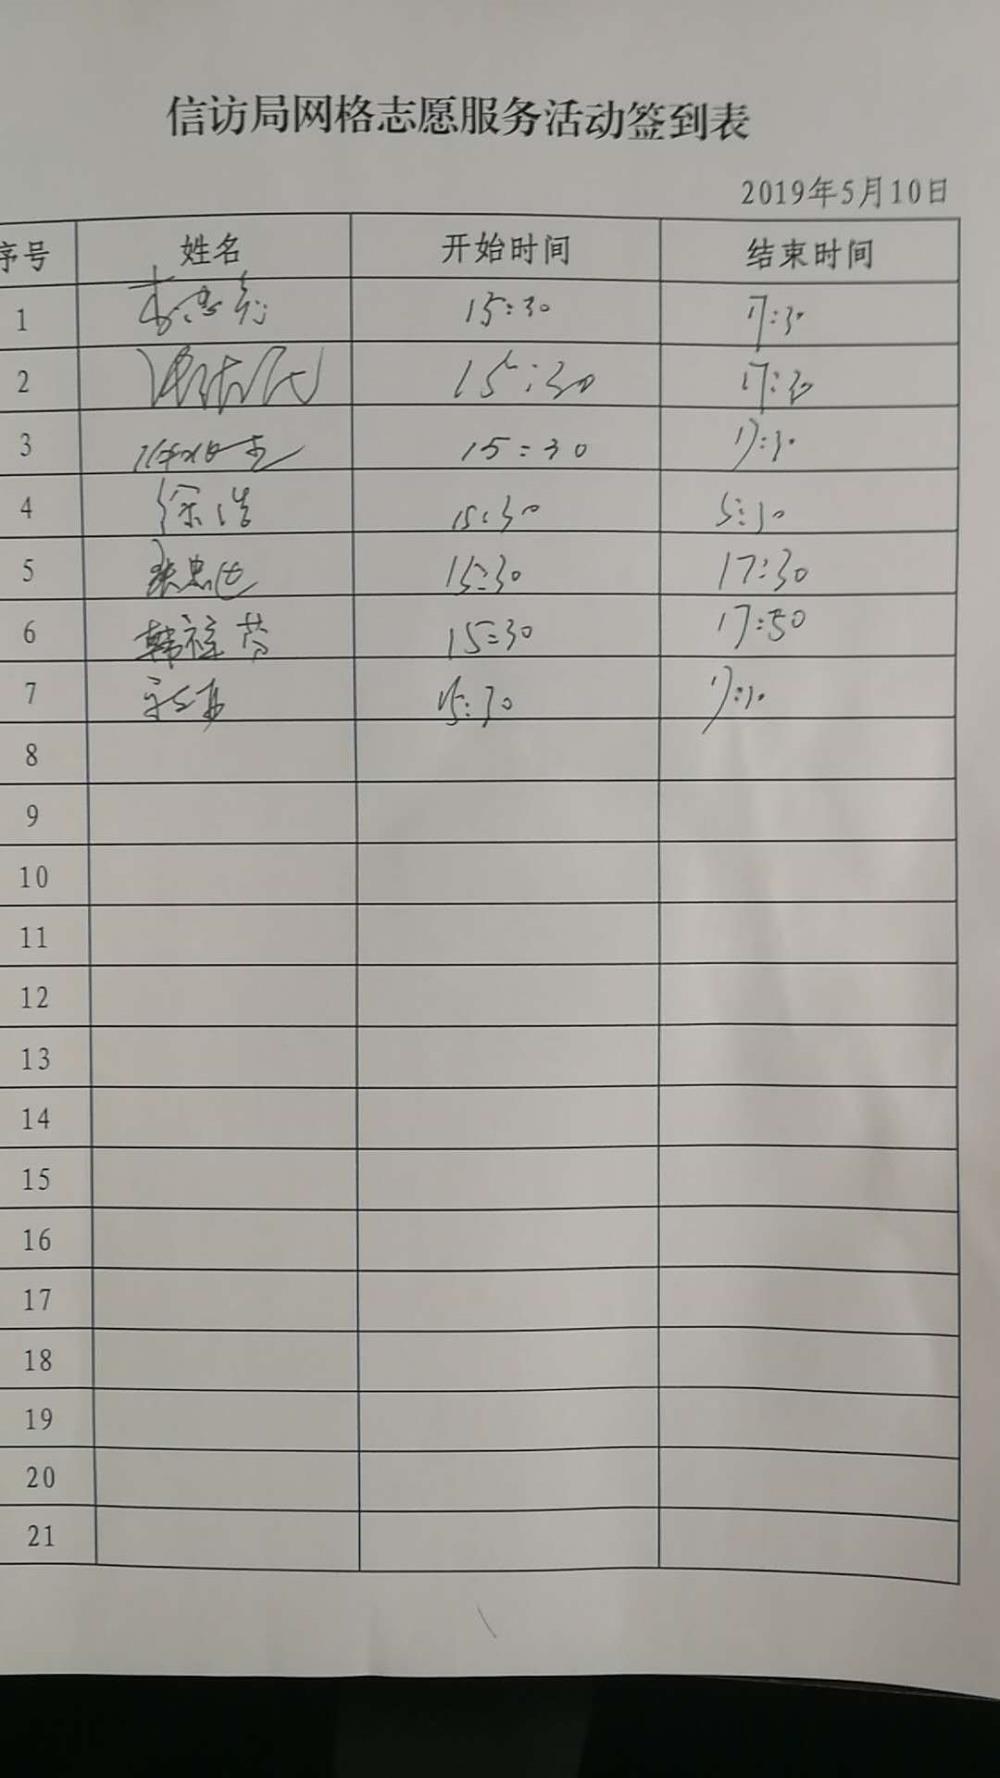 信访局网格志愿服务活动签到表
2019年5月10日
序号 姓名 开始时间 结束时间
1 15:30 17:30
2 15:30 17:30
3 15:30 17:30
4 徐浩 15:30 5:30
5 张忠仕 15:30 17:30
6 韩 芬 15:30 17:50
7 15:30 17:30
8
9
10
11
12
13
14
15
16
17
18
19
20
21